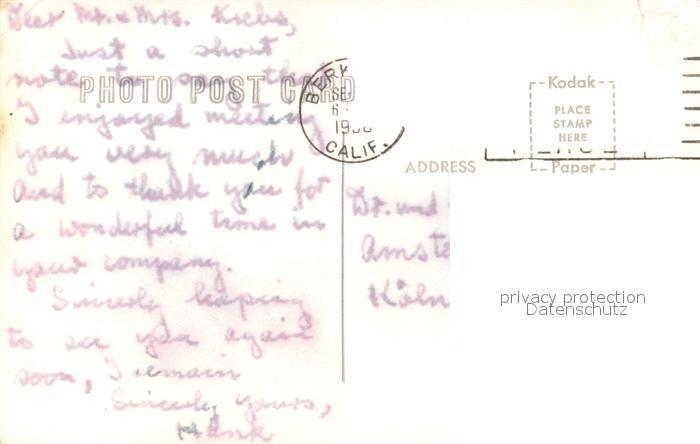 Dear Mr. & Mrs. Krebs,
Just a short
note to say that
I enjoyed meeting
you very much
and to thank you for
a wonderful time in
your company.
Sincerely hoping
to see you again
soon, I remain
Sincerely yours,
Hank
PHOTO POST CARD
BERK
SE
6
19
CALIF.
Kodak
PLACE
STAMP
HERE
Paper
ADDRESS
Dr. und
Amste
Köln
privacy protection
Datenschutz